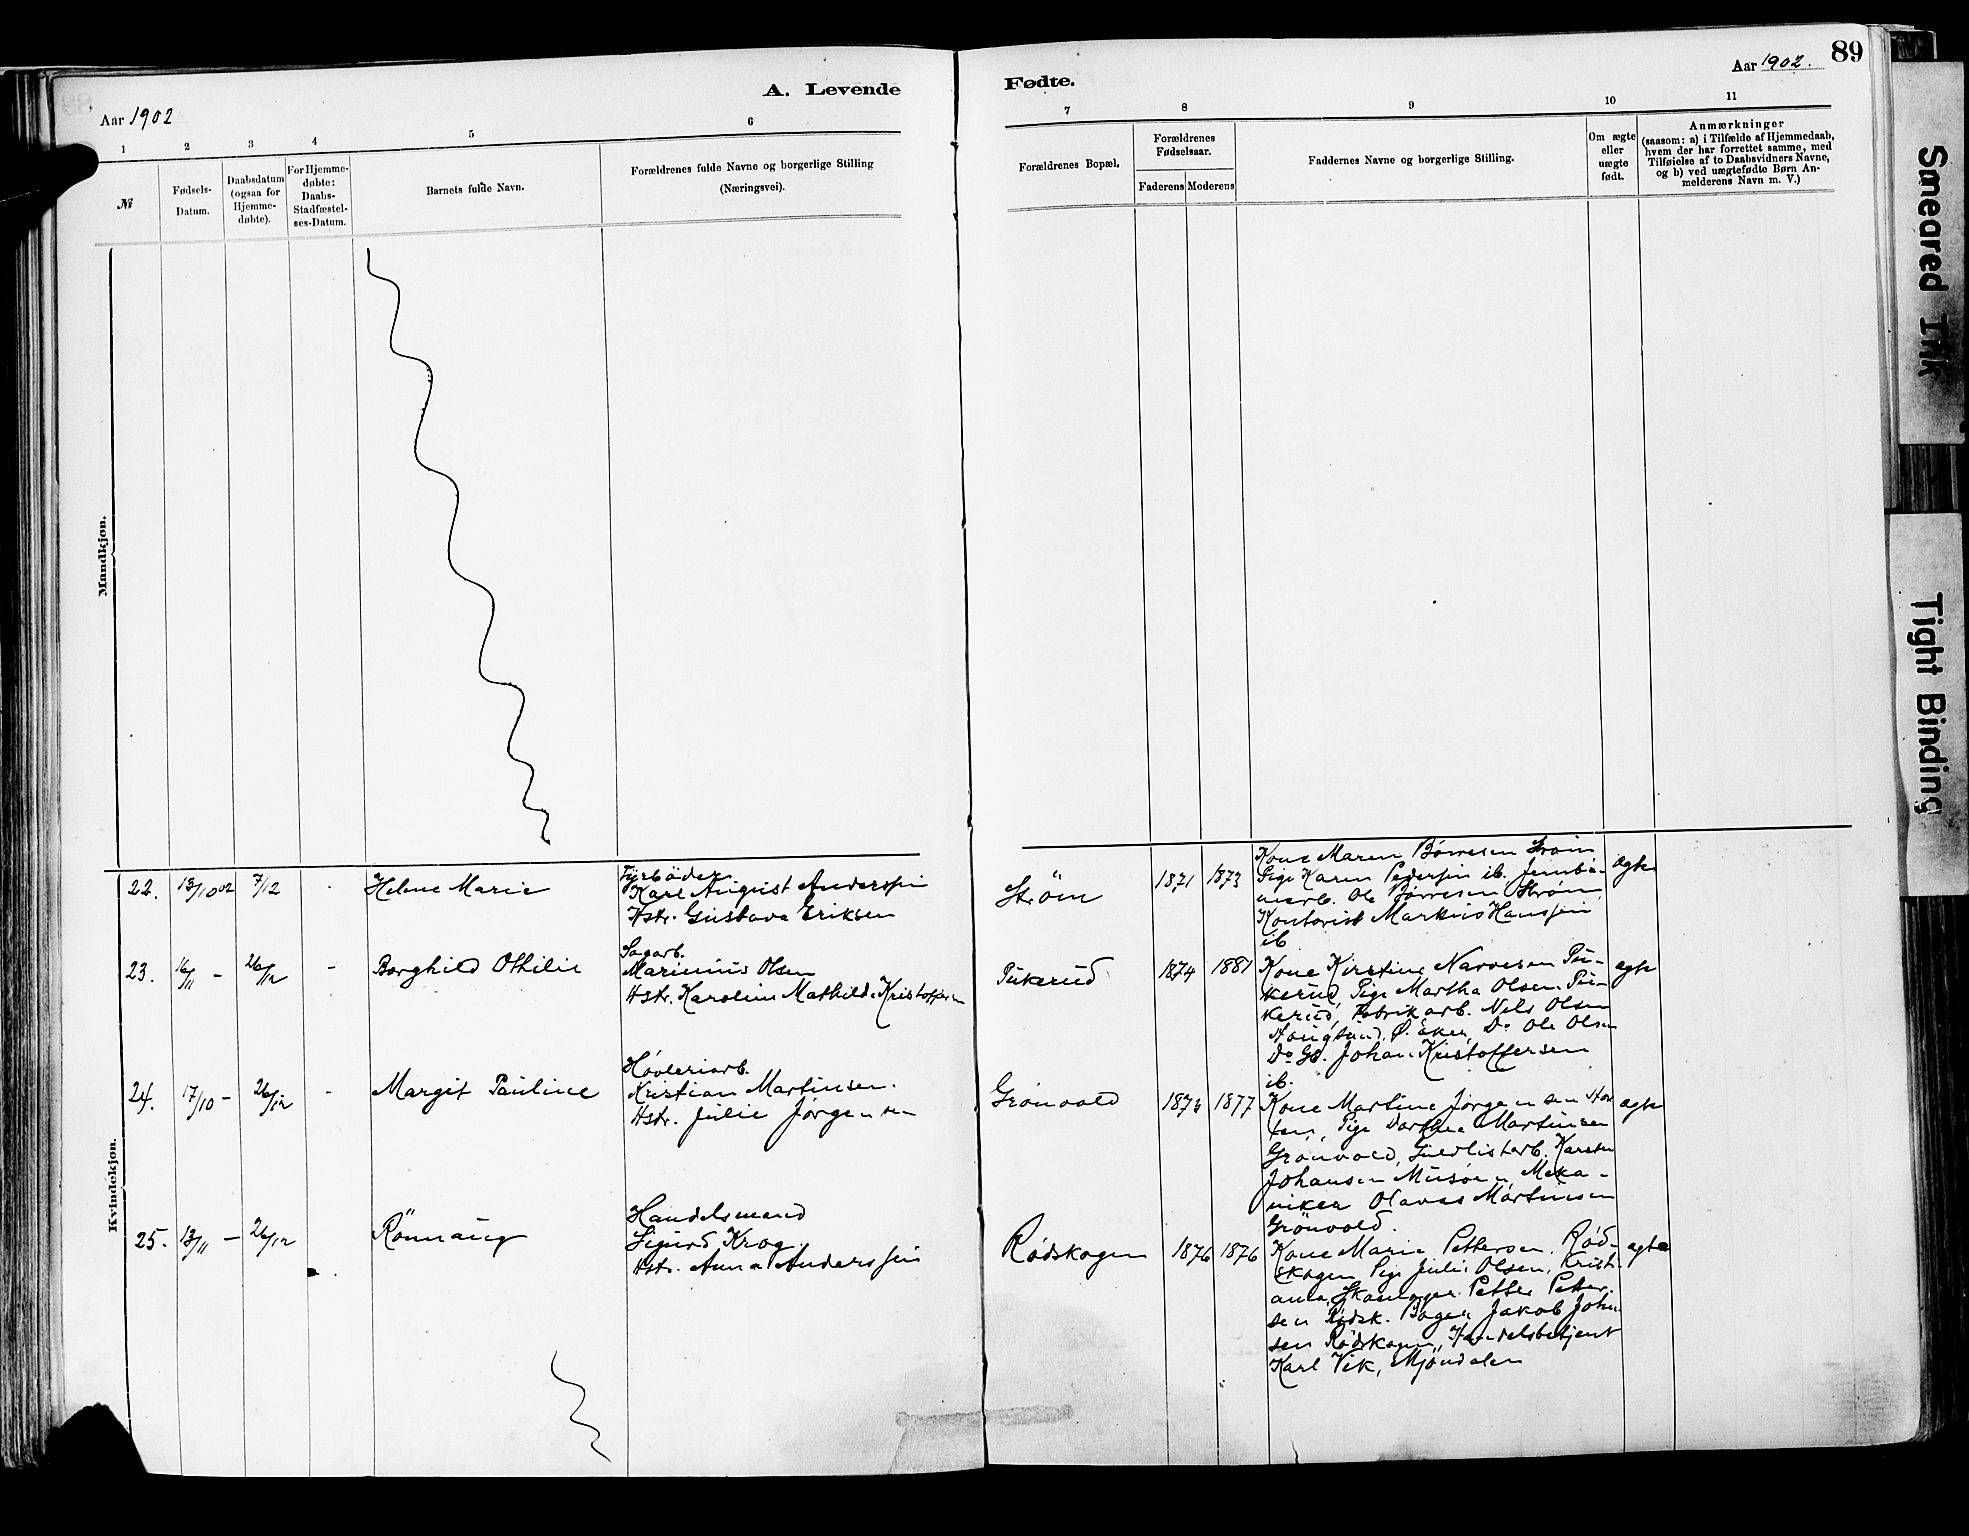 A. Levende
Aar 1902
1 2 3 4 5 6
№
Fødsels-
Datum.
Daabsdatum
(ogsaa for
Hjemme-
døbte).
For Hjemme-
døbte:
Daabs-
Stadfæstel-
ses-Datum.
Barnets fulde Navn.
Forældrenes fulde Navne og borgerlige Stilling
(Næringsvei).
Mandkjøn.
Kvindekjøn.
22. 13/10 02 7/12 Helene Marie
Fyrbøder
Karl August Anderssen
Hstr. Gustava Eriksen
23. 16/11 - 26/12 - Borghild Othilie
Sagarb.
Marinius Olsen
Hstr. Karoline Mathilde Kristoffersen
24. 17/10 - 26/12 - Margit Pauline
Høvleriarb.
Kristian Martinsen.
Hstr. Julie Jørgensen
25. 13/11 - 26/12 Rönnaug
Handelsmand
Sigurd Krog.
Hstr. Anna Anderssen
Fødte.
Aar 1902.
89
7 8 9 10 11
Forældrenes Bopæl.
Forældrenes
Fødselsaar.
Faderens Moderens
Faddernes Navne og borgerlige Stilling.
Om ægte
eller
uægte
født.
Anmærkninger
(saasom: a) i Tilfælde af Hjemmedaab,
hvem der har forrettet samme, med
Tilføielse af to Daabsvidners Navne,
og b) ved uægtefødte Børn An-
melderens Navn m. V.)
Strøm 1871 1873
Kone Maren Børresen Strøm
Pige Karen Pedersen ib. Jernba-
nearb. Ole Børresen Strøm,
Kontorist Markus Hanssen
ib
ægte
Pukerud 1874 1881
Kone Kirstine Narvesen Pu-
kerud, Pige Martha Olsen Pu-
kerud, Fabrikarb. Nils Olsen
Hougsund, Ø. Eker, Do Ole Olsen
Do Gb. Johan Kristoffersen
ib.
ægte
Grönvold 1873 1877
Kone Martine Jørgensen
Pige Dorthea Martinsen
Grönvold, Karsten
Johansen Meka-
niker Olaves Martinsen
Grönvold.
ægte
Rødskogen 1876 1876
Kone Marie Pettersen, Rød-
skogen Pige Julie Olsen, Kristi-
ania, Skomager Petter Petter-
sen Rødsk. Bager Jakob Johan-
sen Rødskogen, Handelsbetjent
Karl Vik, Mjöndalen
ægte
Smeared Ink
Tight Binding